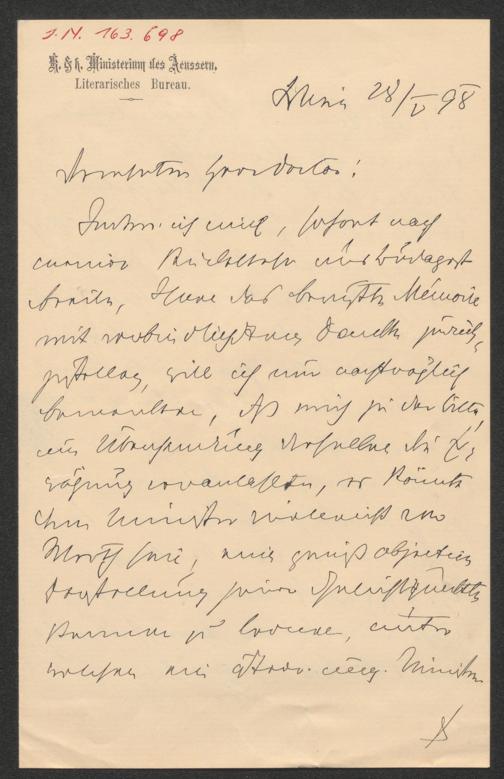 I.N. 163.698
K. & k. Ministerium des Aeussern.
Literarisches Bureau.
Wien 28/V 98
Verehrter Herr Doctor!
Indem ich mich, sofort nach
meiner Rückkehr aus Budapest
beeile, Ihnen das Mémoire
mit verbindlichstem Danke zurück-
zustellen, will ich nur nachträglich
bemerken, daß mich zu der Bitte
um Übersendung desselben die Er-
wägung veranlaßte, es könnte
dem Minister vielleicht von
Werth sein, eine objective
Darstellung jener
kennen zu lernen, unter
welchen ein Minister